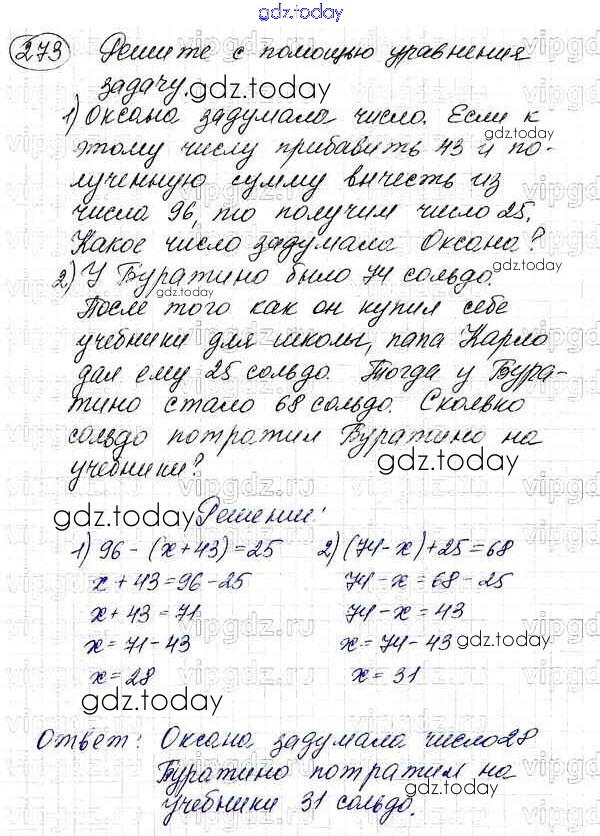 gdz.today
273 Решите с помощью уравнения
задачу.
1) Оксана задумала число. Если к
этому числу прибавить 43 и по-
лученную сумму вычесть из
числа 96, то получим число 25.
Какое число задумала Оксана?
2) У Буратино было 74 сольдо.
После того как он купил себе
учебники для школы, папа Карло
дал ему 25 сольдо. Тогда у Бура-
тино стало 68 сольдо. Сколько
сольдо потратил Буратино на
учебники?
gdz.today
Решение:
1) 96 - (x + 43) = 25
x + 43 = 96 - 25
x + 43 = 71
x = 71 - 43
x = 28
2) (74 - x) + 25 = 68
74 - x = 68 - 25
74 - x = 43
x = 74 - 43
x = 31
gdz.today
Ответ: Оксана задумала число 28
Буратино потратил на
учебники 31 сольдо.